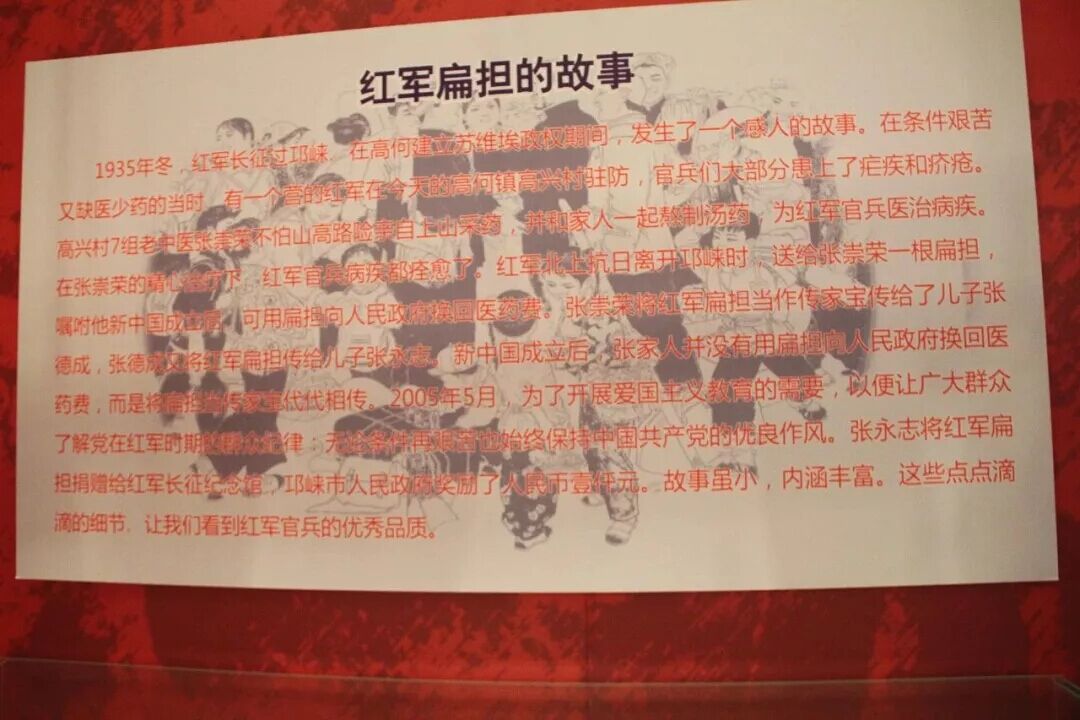 红军扁担的故事
1935年冬，红军长征过邛崃，在高何建立苏维埃政权期间，发生了一个感人的故事。在条件艰苦
又缺医少药的当时，有一个营的红军在今天的高何镇高兴村驻防，官兵们大部分患上了疟疾和疥疮。
高兴村7组老中医张崇荣不怕山高路险亲自上山采药，并和家人一起熬制汤药，为红军官兵医治病疾。
在张崇荣的精心治疗下，红军官兵病疾都痊愈了。红军北上抗日离开邛崃时，送给张崇荣一根扁担，
嘱咐他新中国成立后，可用扁担向人民政府换回医药费。张崇荣将红军扁担当作传家宝传给了儿子张
德成，张德成又将红军扁担传给儿子张永志。新中国成立后，张家人并没有用扁担向人民政府换回医
药费，而是将扁担当传家宝代代相传。2005年5月，为了开展爱国主义教育的需要，以便让广大群众
了解党在红军时期的群众纪律：无论条件再艰苦也始终保持中国共产党的优良作风。张永志将红军扁
担捐赠给红军长征纪念馆，邛崃市人民政府奖励了人民币壹仟元。故事虽小，内涵丰富。这些点点滴
滴的细节，让我们看到红军官兵的优秀品质。